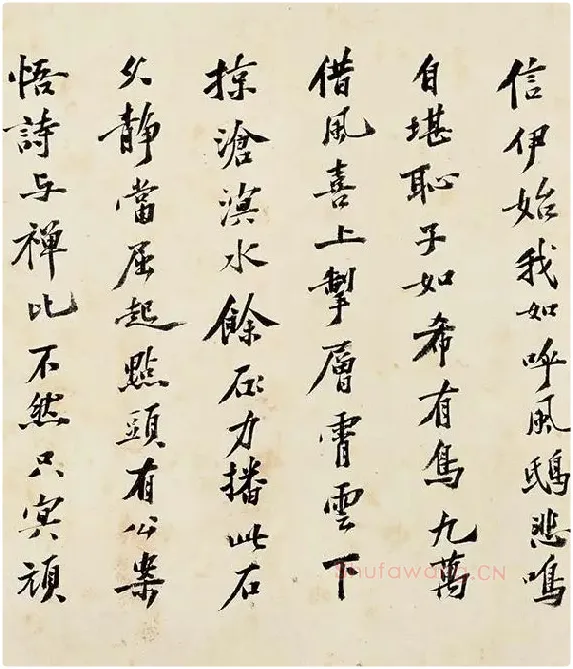 信伊始我如呼風鴟悲鳴
自堪恥子如希有鳥九萬
借風喜上掣層霄雲下
掠滄溟水餘砭力播此石
久静當屈起點頭有公案
悟詩与禪此不然只冥頑
Shufawang.CN